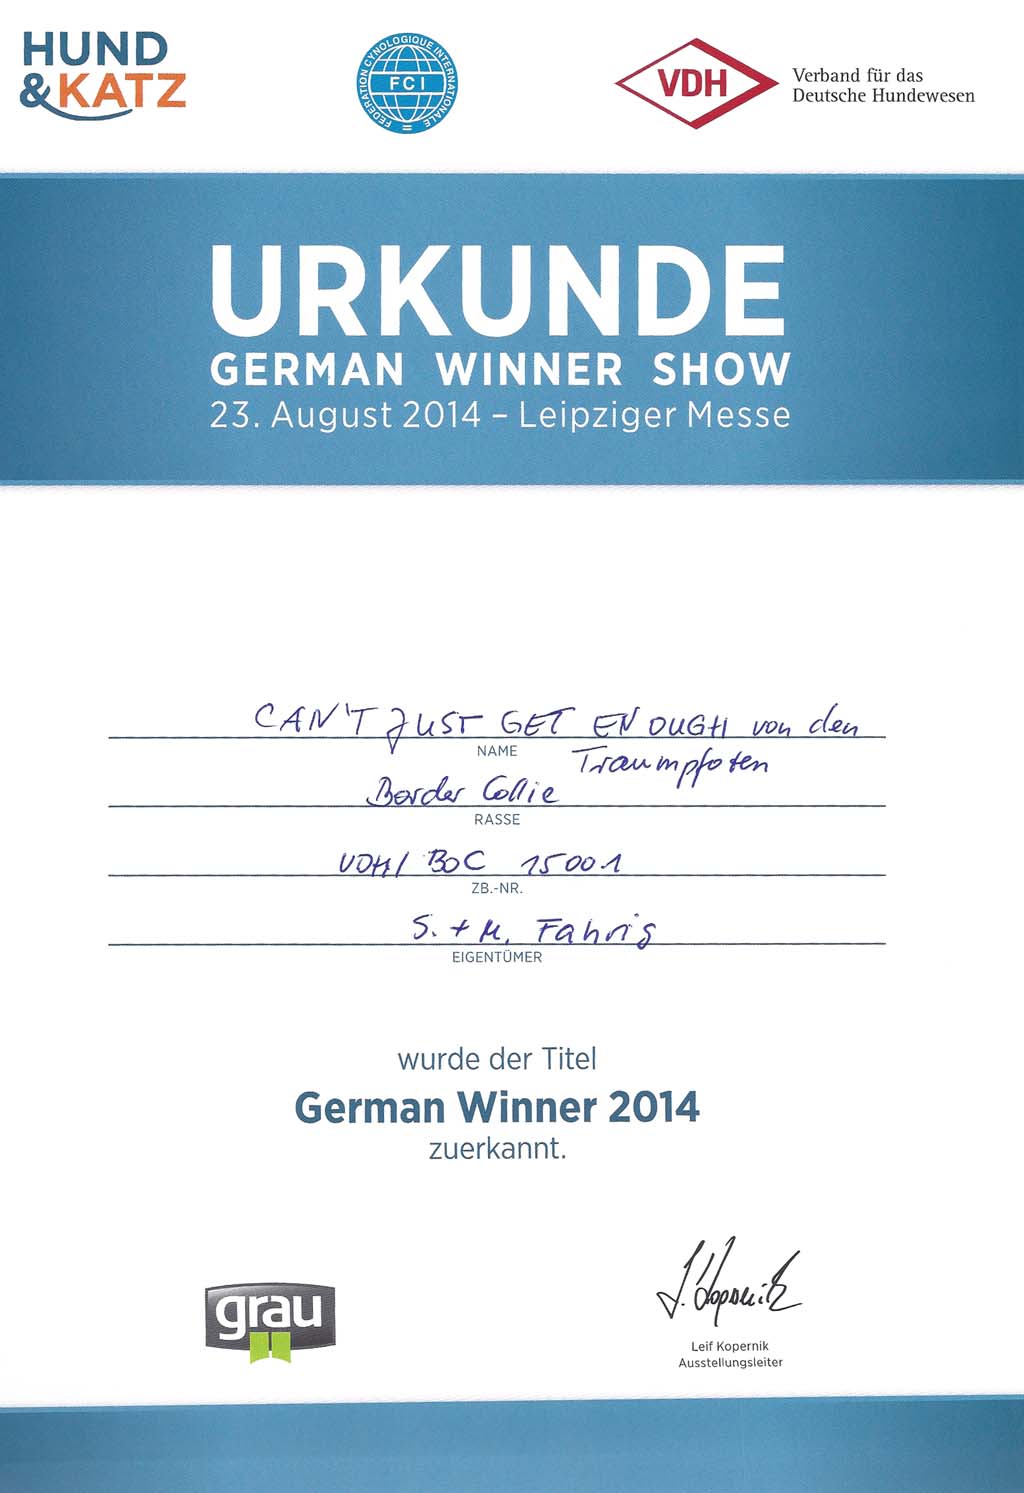 HUND
&KATZ
FEDERATION CYNOLOGIQUE INTERNATIONALE
FCI
VDH
Verband für das
Deutsche Hundewesen
URKUNDE
GERMAN WINNER SHOW
23. August 2014 – Leipziger Messe
CAN'T JUST GET ENOUGH von den
NAME
Traumpfoten
Border Collie
RASSE
VDH/ BOC 15001
ZB.-NR.
S. + M. Fahrig
EIGENTÜMER
wurde der Titel
German Winner 2014
zuerkannt.
grau
L. Kopernik
Leif Kopernik
Ausstellungsleiter